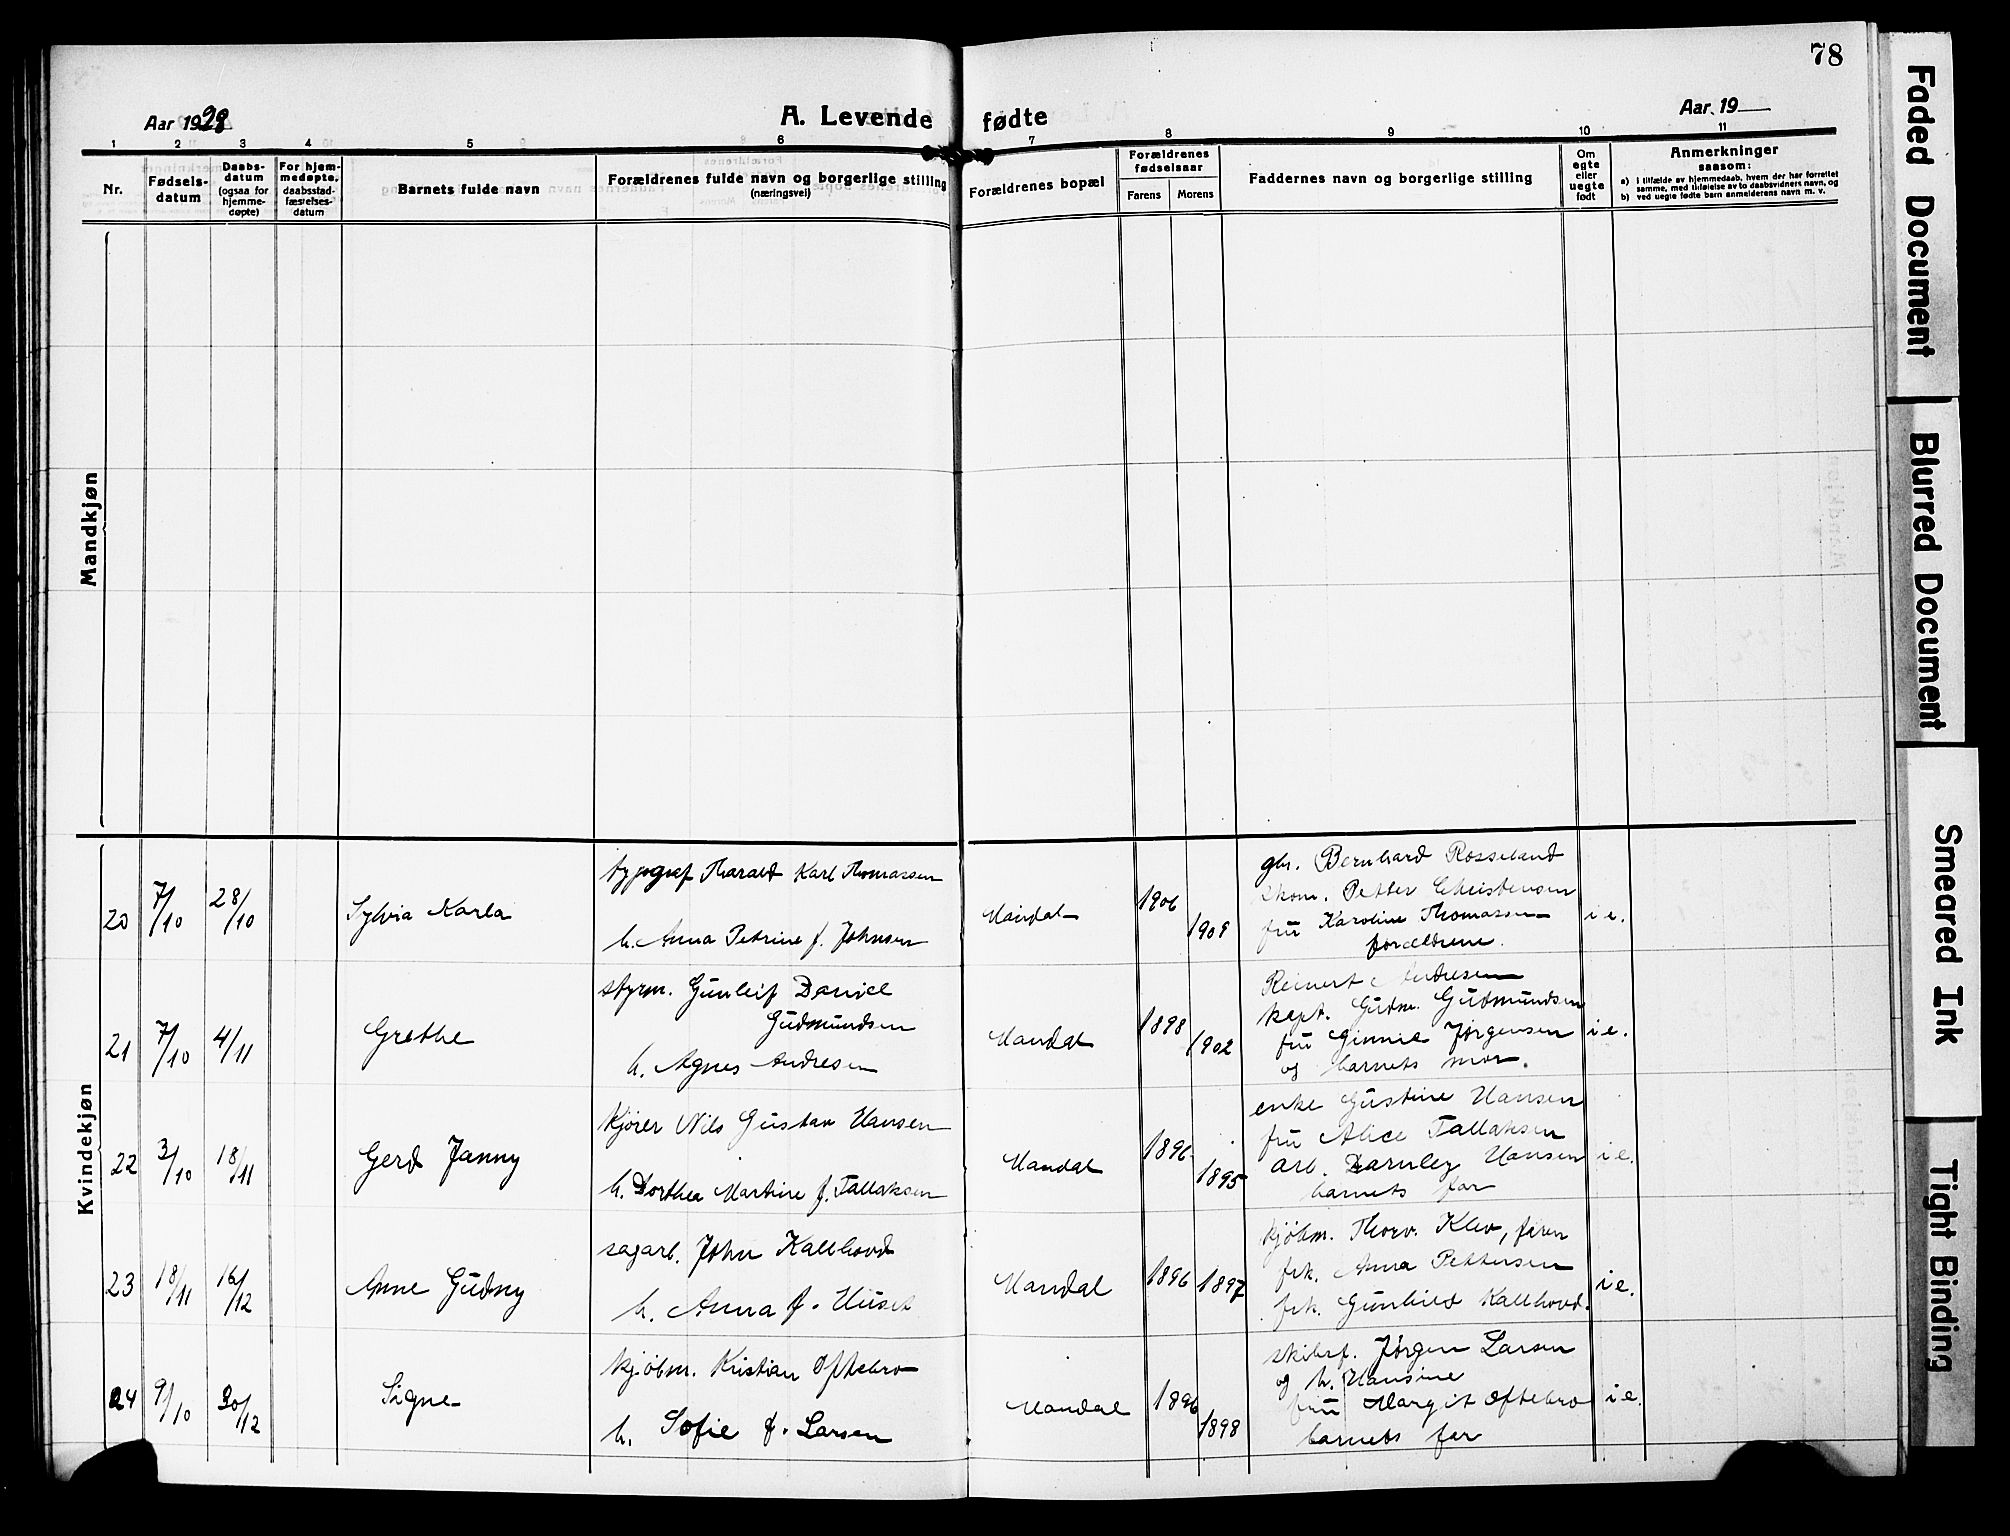 78
Aar 1928
A. Levende fødte
Aar 19
1 2 3 4 5 6 7 8 9 10 11
Nr.
Fødsels-
datum
Daabs-
datum
(ogsaa for
hjemme-
døpte)
For hjem-
medøpte,
daabsstad-
fæstelses-
datum
Barnets fulde navn
Forældrenes fulde navn og borgerlige stilling
(næringsvei)
Forældrenes bopæl
Forældrenes
fødselsaar
Farens Morens
Faddernes navn og borgerlige stilling
Om
egte
eller
uegte
født
Anmerkninger
saasom:
a) i tilfælde av hjemmedaab, hvem der har forrettet
samme, med tilføielse av to daabsvidners navn, og
b) ved uegte fødte barn anmelderens navn m. v.
Mandkjøn
Kvindekjøn
20 7/10 28/10
Sylvia Karla
typograf Harald Karl Thomassen
h. Anna Petrine f. Johnsen
Mandal
1906
1909
gbr. Bernhard Rosseland
Petter Christensen
fru Karoline Thomassen
forældrene.
i e.
21 7/10 4/11
Grethe
styrm. Gunleif Daniel
Gudmundsen
h. Agnes Andresen
Mandal
1898
1902
Reinert Andresen
kapt. Gudm. Gudmundsen
fru Ginnie Jørgensen
og barnets mor.
i e.
22 3/10 18/11
Gerd Janny
kjører Nils Gustav Hansen
h. Dorthea Martine f. Tallaksen
Mandal
1896
1895
enke Gustine Hansen
fru Alice Tallaksen
arb. Darnley Hansen
barnets far
i e.
23 18/11 16/12
Anne Gudny
sagarb. John Kallhovd
h. Anna f. Huset
Mandal
1896 1897
kjøbm. Thorv. Klev,
frk. Anna Pettersen
frk. Gunhild Kallhovd.
i e.
24 9/10 30/12
Signe
kjøbm. Kristian Oftebro
h. Sofie f. Larsen
Mandal
1896
1898
skibsf. Jørgen Larsen
og h. Hansine
fru Margit Oftebro
barnets far
i e.
Faded Document
Blurred Document
Smeared Ink
Tight Binding